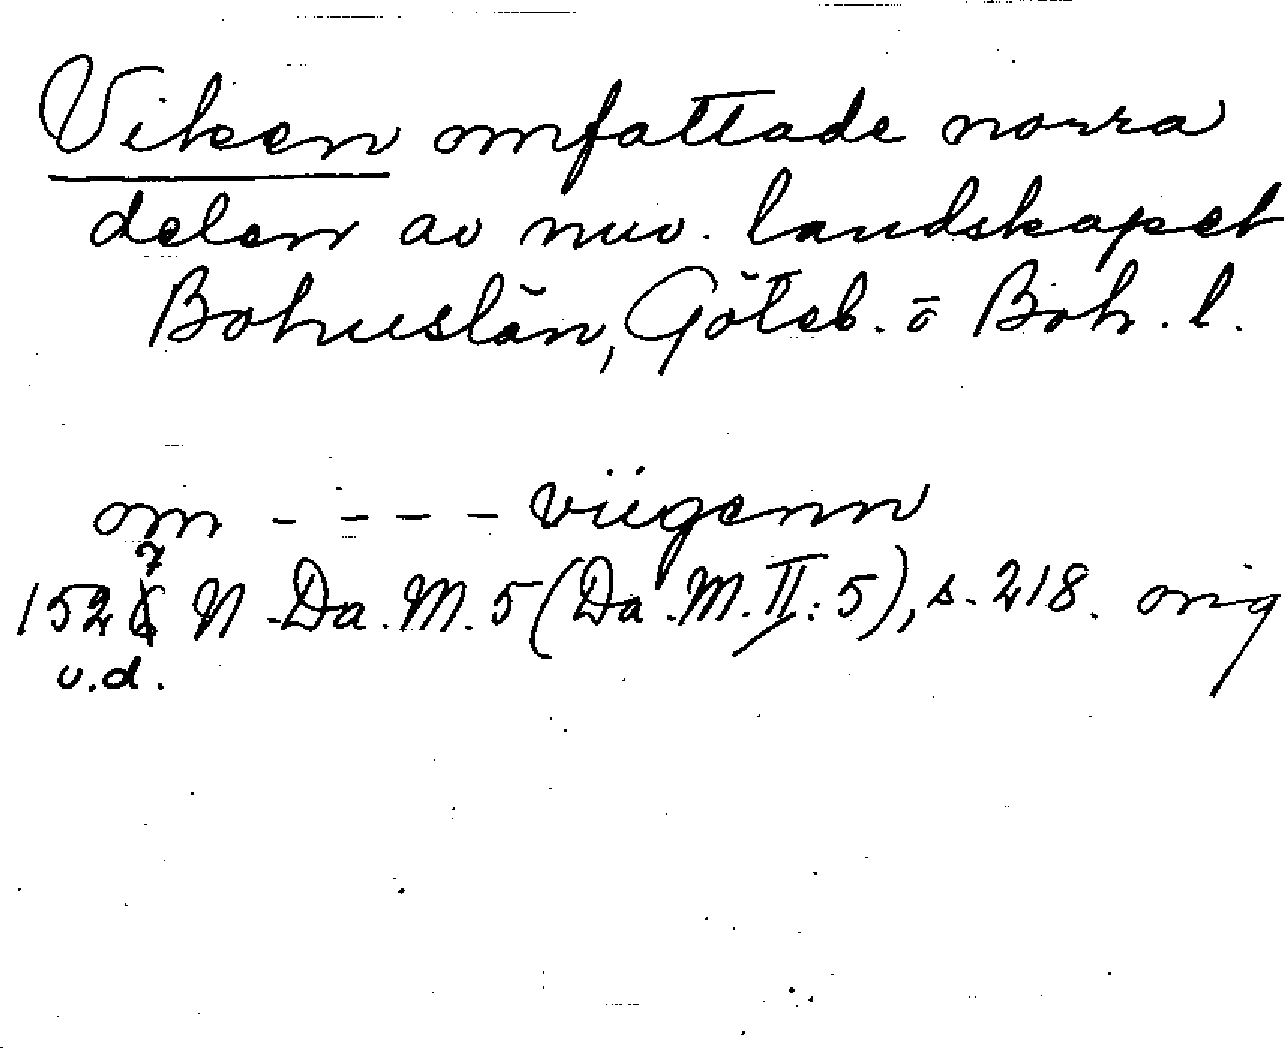 Viken omfattade norra
delen av nuv. landskapet
Bohuslän, Göteb. o Boh. l.
om - - - - viigenn
1527 N. Da. M. 5 (Da. M. II: 5), s. 218. orig
u.d.